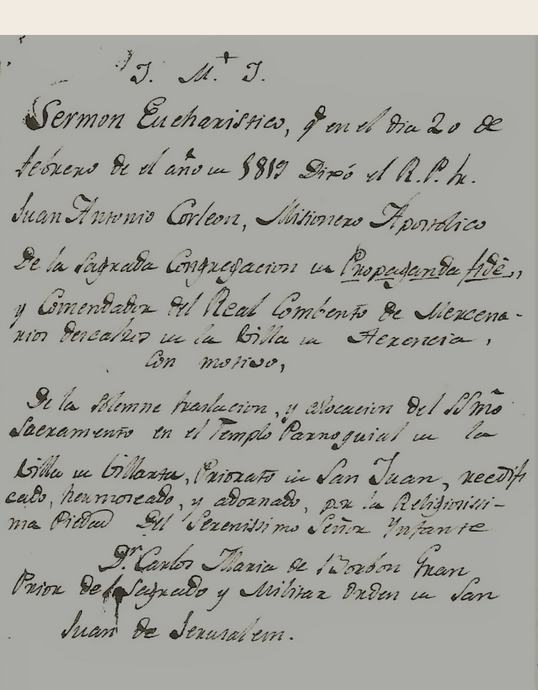 J. M.ª J.
Sermon Eucharistico, q̃ en el dia 20 de
febrero de el año de 1819 Dixó el R. P. fr.
Juan Antonio Corleon, Misionero Apostolico
De la Sagrada Congregacion de Propaganda fide,
y Comendador del Real Combento de Mercena-
rios descalzos de la Villa de Herencia,
Con motivo,
De la solemne traslacion, y colocacion del SSmõ
Sacramento en el Templo Parroquial de la
Villa de Villarta, Priorato de San Juan, reedifi
cado, hermoseado, y adornado, por la Religiosisi-
ma Piedad Del Serenissimo Señor Ynfante
Dn. Carlos Maria de Borbón Gran
Prior de la Sagrado y Militar Orden de San
Juan de Jerusalem.